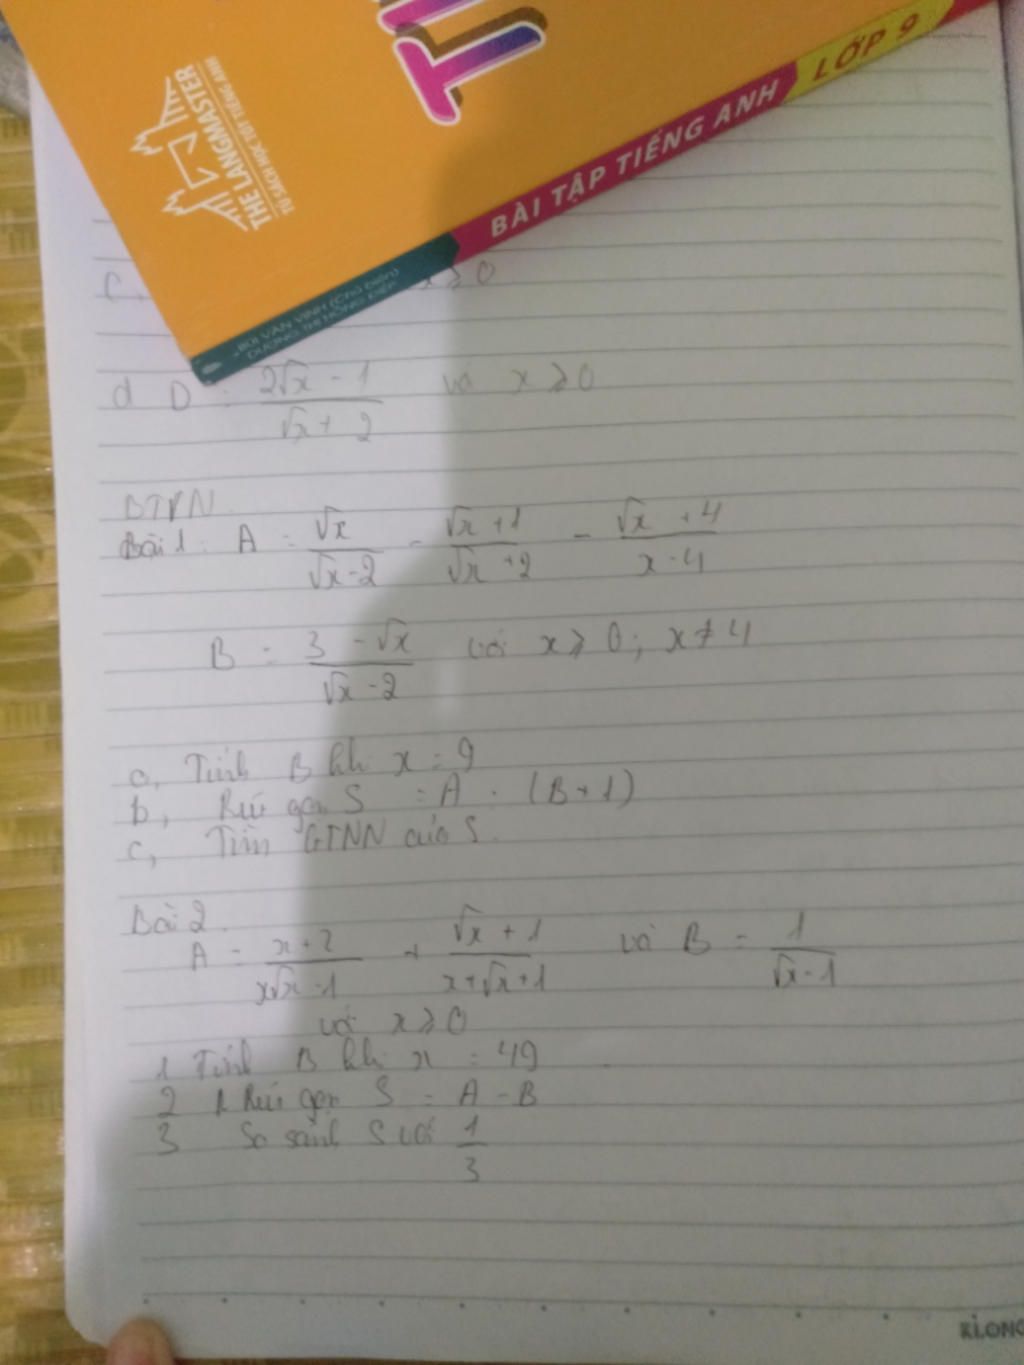 THE LANGMASTER
TỦ SÁCH HỌC TỐT TIẾNG ANH
BÀI TẬP TIẾNG ANH LỚP 9
BÙI VĂN VINH (Chủ biên)
DƯƠNG THỊ HỒNG ĐIỆP
c, x ≥ 0
d D = (2√x - 1)/(√x + 2) với x ≥ 0
BTVN
Bài 1: A = √x/(√x - 2) - (√x + 1)/(√x + 2) - (√x + 4)/(x - 4)
B = (3 - √x)/(√x - 2) với x ≥ 0; x ≠ 4
a, Tính B khi x = 9
b, Rút gọn S = A : (B + 1)
c, Tìm GTNN của S.
Bài 2.
A = (x + 2)/(x√x - 1) + (√x + 1)/(x + √x + 1) và B = 1/(√x - 1)
với x ≥ 0
1 Tính B khi x = 49
2 Rút gọn S = A - B
3 So sánh S với 1/3
KLONG